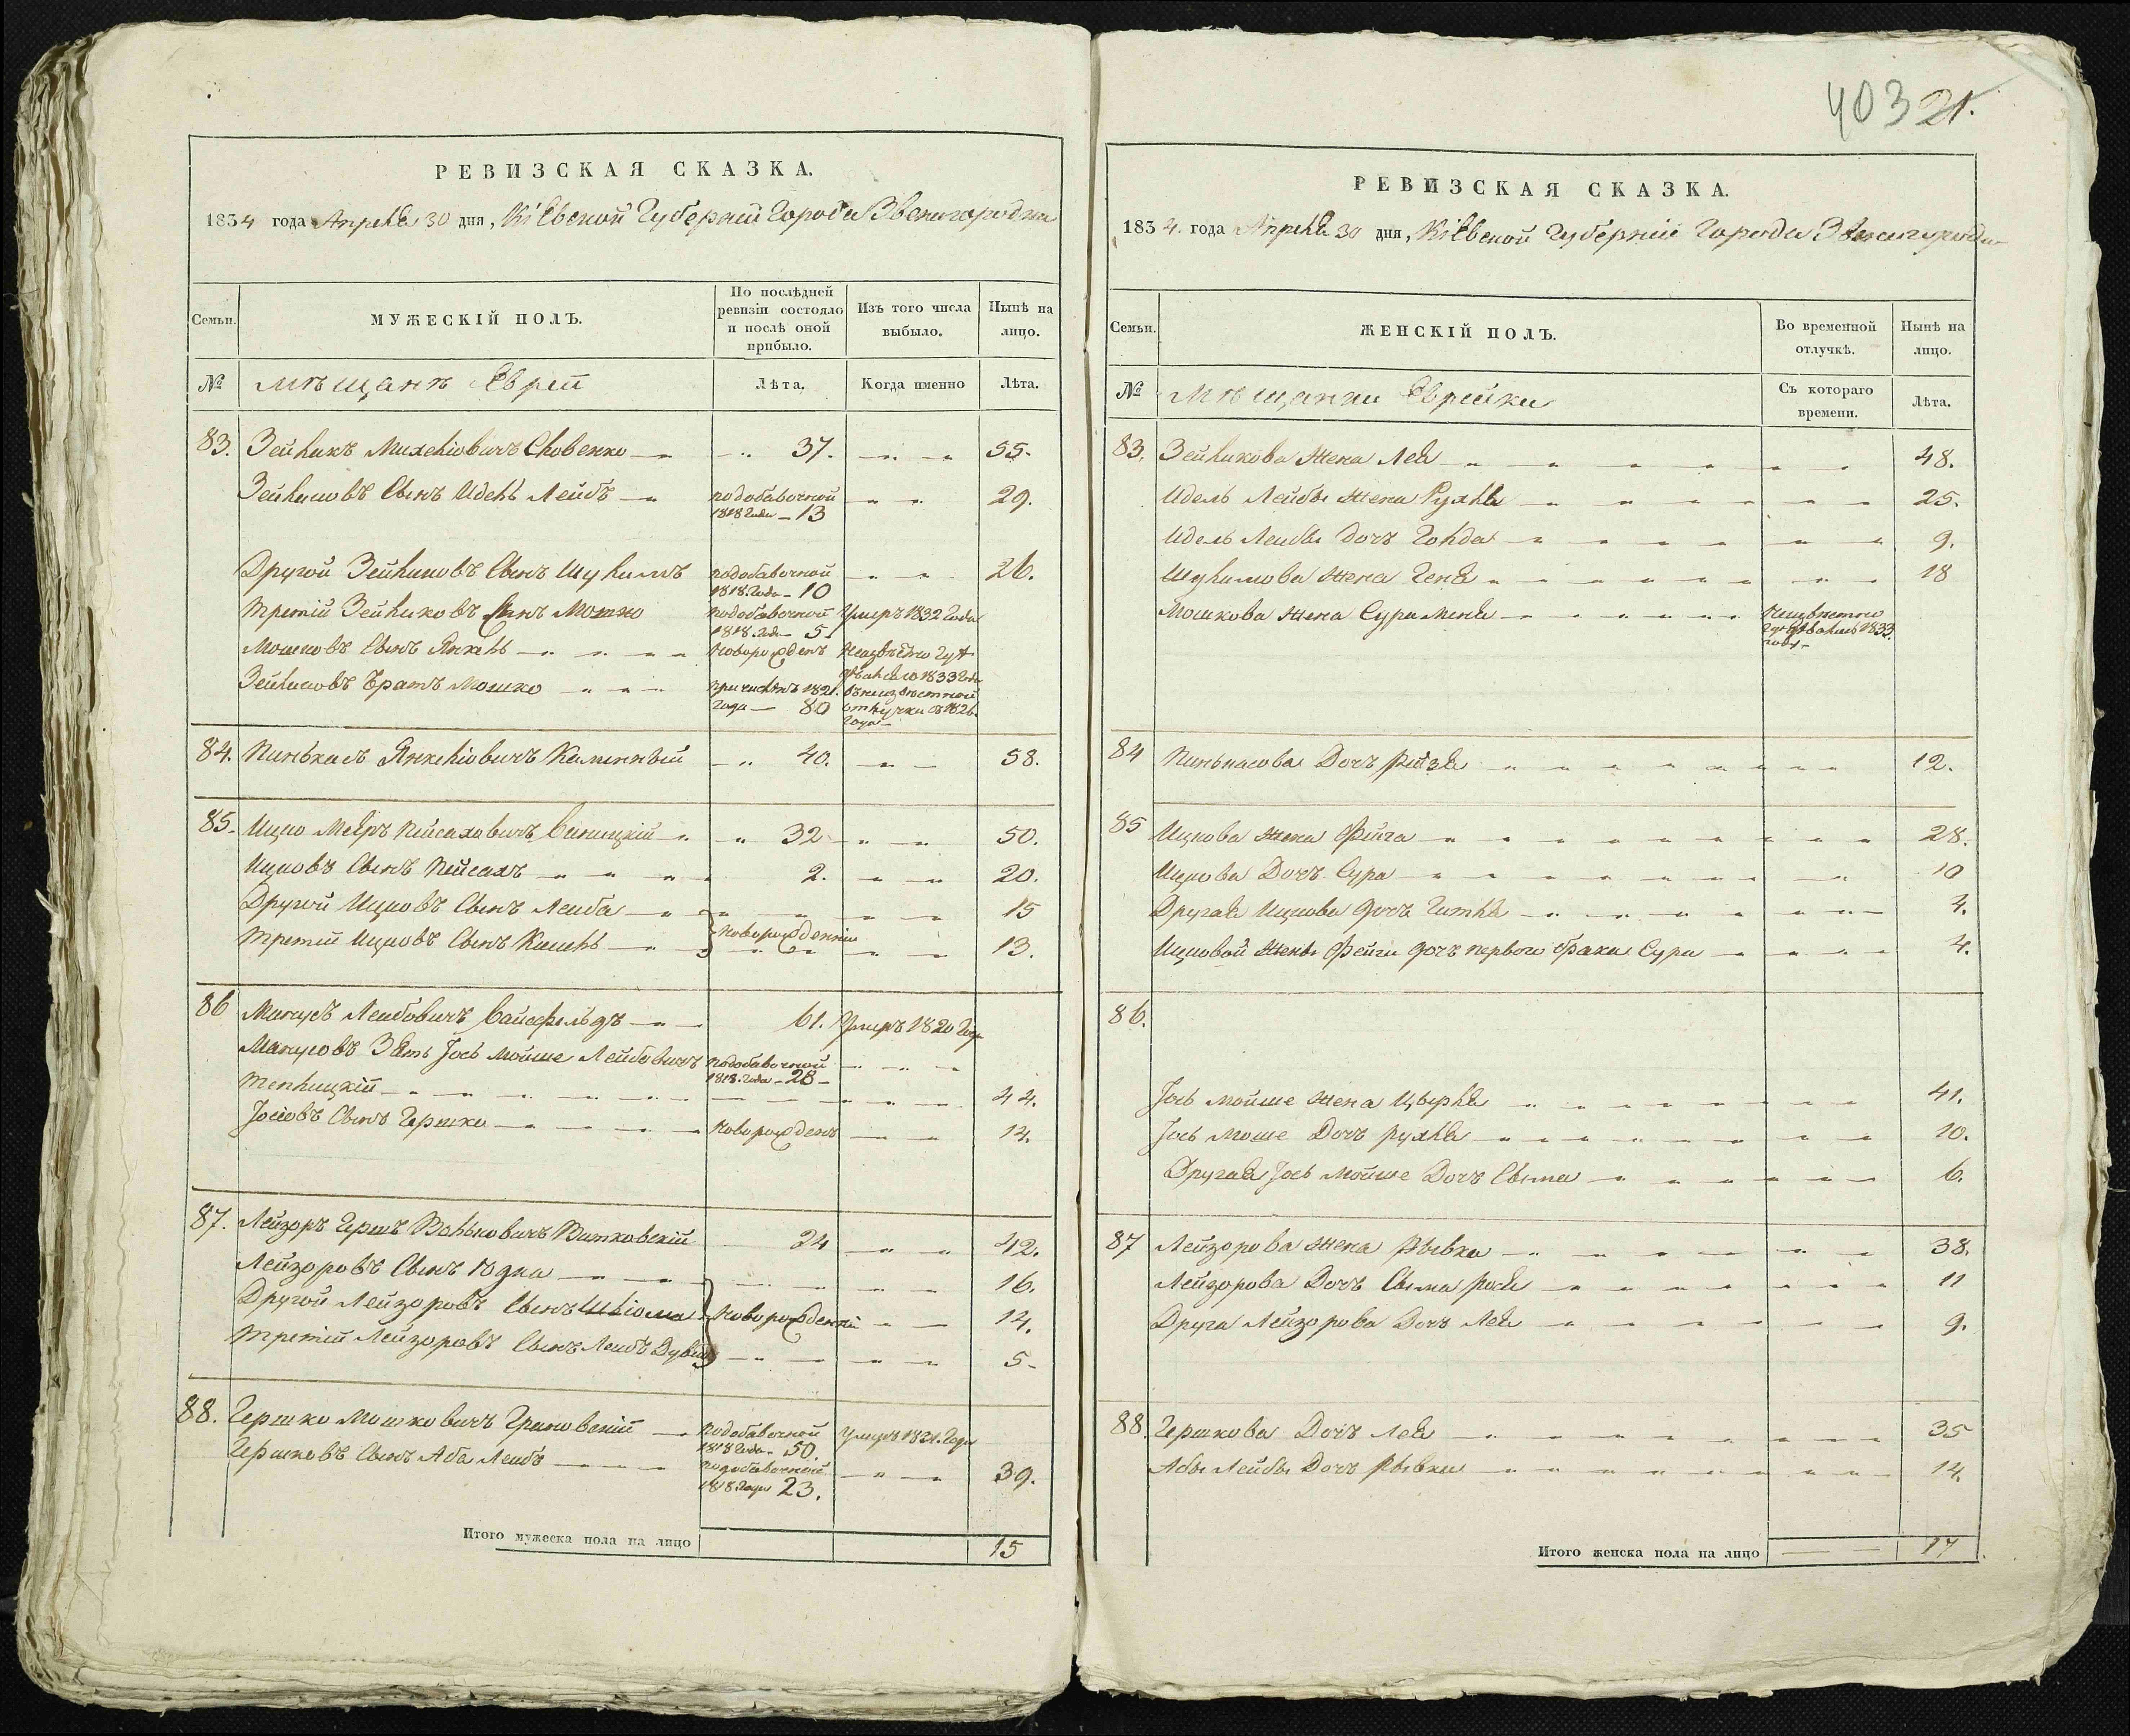 РЕВИЗСКАЯ СКАЗКА.
1834 года Апреля 30 дня, Кіевской Губерніи Города Звенигородки
Семьи.
МУЖЕСКІЙ ПОЛЪ.
По послѣдней ревизіи состояло и послѣ оной прибыло.
Изъ того числа выбыло.
Нынѣ на лицо.
№
Мѣщанъ Еврей
Лѣта.
Когда именно
Лѣта.
83. Зейликъ Михеліовичъ 37. 55.
Зейликовъ Сынъ Идель Лейбъ подобавочной 1818 Года - 13 29.
Другой Зейликовъ Сынъ Шулимъ подобавочной 1818 Года - 10 26.
Третій Зейликовъ Сынъ Мошко подобавочной 1818 Года - 5 Умеръ 1832 Года
Мошковъ Сынъ Янкель новорожденъ 1833 Года
Зейликовъ Братъ Мошко причисленъ 1821. Года - 80 в неизвестной отлучки с 1826. Года
84. Пинькасъ Янкеліовичъ Каминный 40. 58.
85. Ицко Меяръ Пейсаховичъ Виницкій 32 50.
Ицковъ Сынъ Пейсахъ 2. 20.
Другой Ицковъ Сынъ Лейба 15
новорожденніи
Третій Ицковъ Сынъ Кисиль 13.
86 Манусъ Лейбовичъ Вайсфельдъ 61. Умеръ 1820 Года
Манусовъ Зять Іось Мойше Лейбовичъ подобавочной 1818. Года - 28 -
Теплицкій 44.
Іосіовъ Сынъ Гершко новорожденъ 14.
87. Лейзоръ Гершъ Вольковичъ Витковскій 24 42.
Лейзоровъ Сынъ Юдка 16.
Другой Лейзоровъ Сынъ Шліома новорожденніи 14.
Третій Лейзоровъ Сынъ Лейбъ Дувидъ 5-
88. Гершко Мошковичъ Грановскій подобавочной 1818 Года - 50. Умеръ 1821. Года
Гершковъ Сынъ Аба Лейбъ подобавочной 1818. Года 23. 39.
Итого мужеска пола на лицо 15
403 21.
РЕВИЗСКАЯ СКАЗКА.
1834. года Апреля 30 дня, Кіевской Губерніи Города Звенигородки
Семьи.
ЖЕНСКІЙ ПОЛЪ.
Во временной отлучкѣ.
Нынѣ на лицо.
№
Мѣщанки Еврейки
Съ котораго времени.
Лѣта.
83. Зейликова Жена Лея 48.
Идель Лейбы Жена Рухля 25.
Идель Лейбы дочъ Голда 9.
Шулимова жена Геня 18
Мошкова жена Сура Меня 1833 года -
84 Пинькасова Дочъ Рейзя 12.
85 Ицкова жена Фейга 28.
Ицкова Дочъ Сура 10
Другая Ицкова дочъ Гитля 4.
Ицковой Жены Фейги дочъ первого брака Сура 4.
86.
Іось Мойше жена Цырля 41.
Іось Моше Дочъ Рухля 10.
Другая Іось Мойше Дочъ Сыма 6.
87 Лейзорова жена Рывка 38.
Лейзорова Дочъ Сыма Рося 11
Друга Лейзорова Дочъ Лея 9.
88. Гершкова Дочъ Лея 35
Абы Лейбы Дочъ Рывка 14.
Итого женска пола на лицо 17